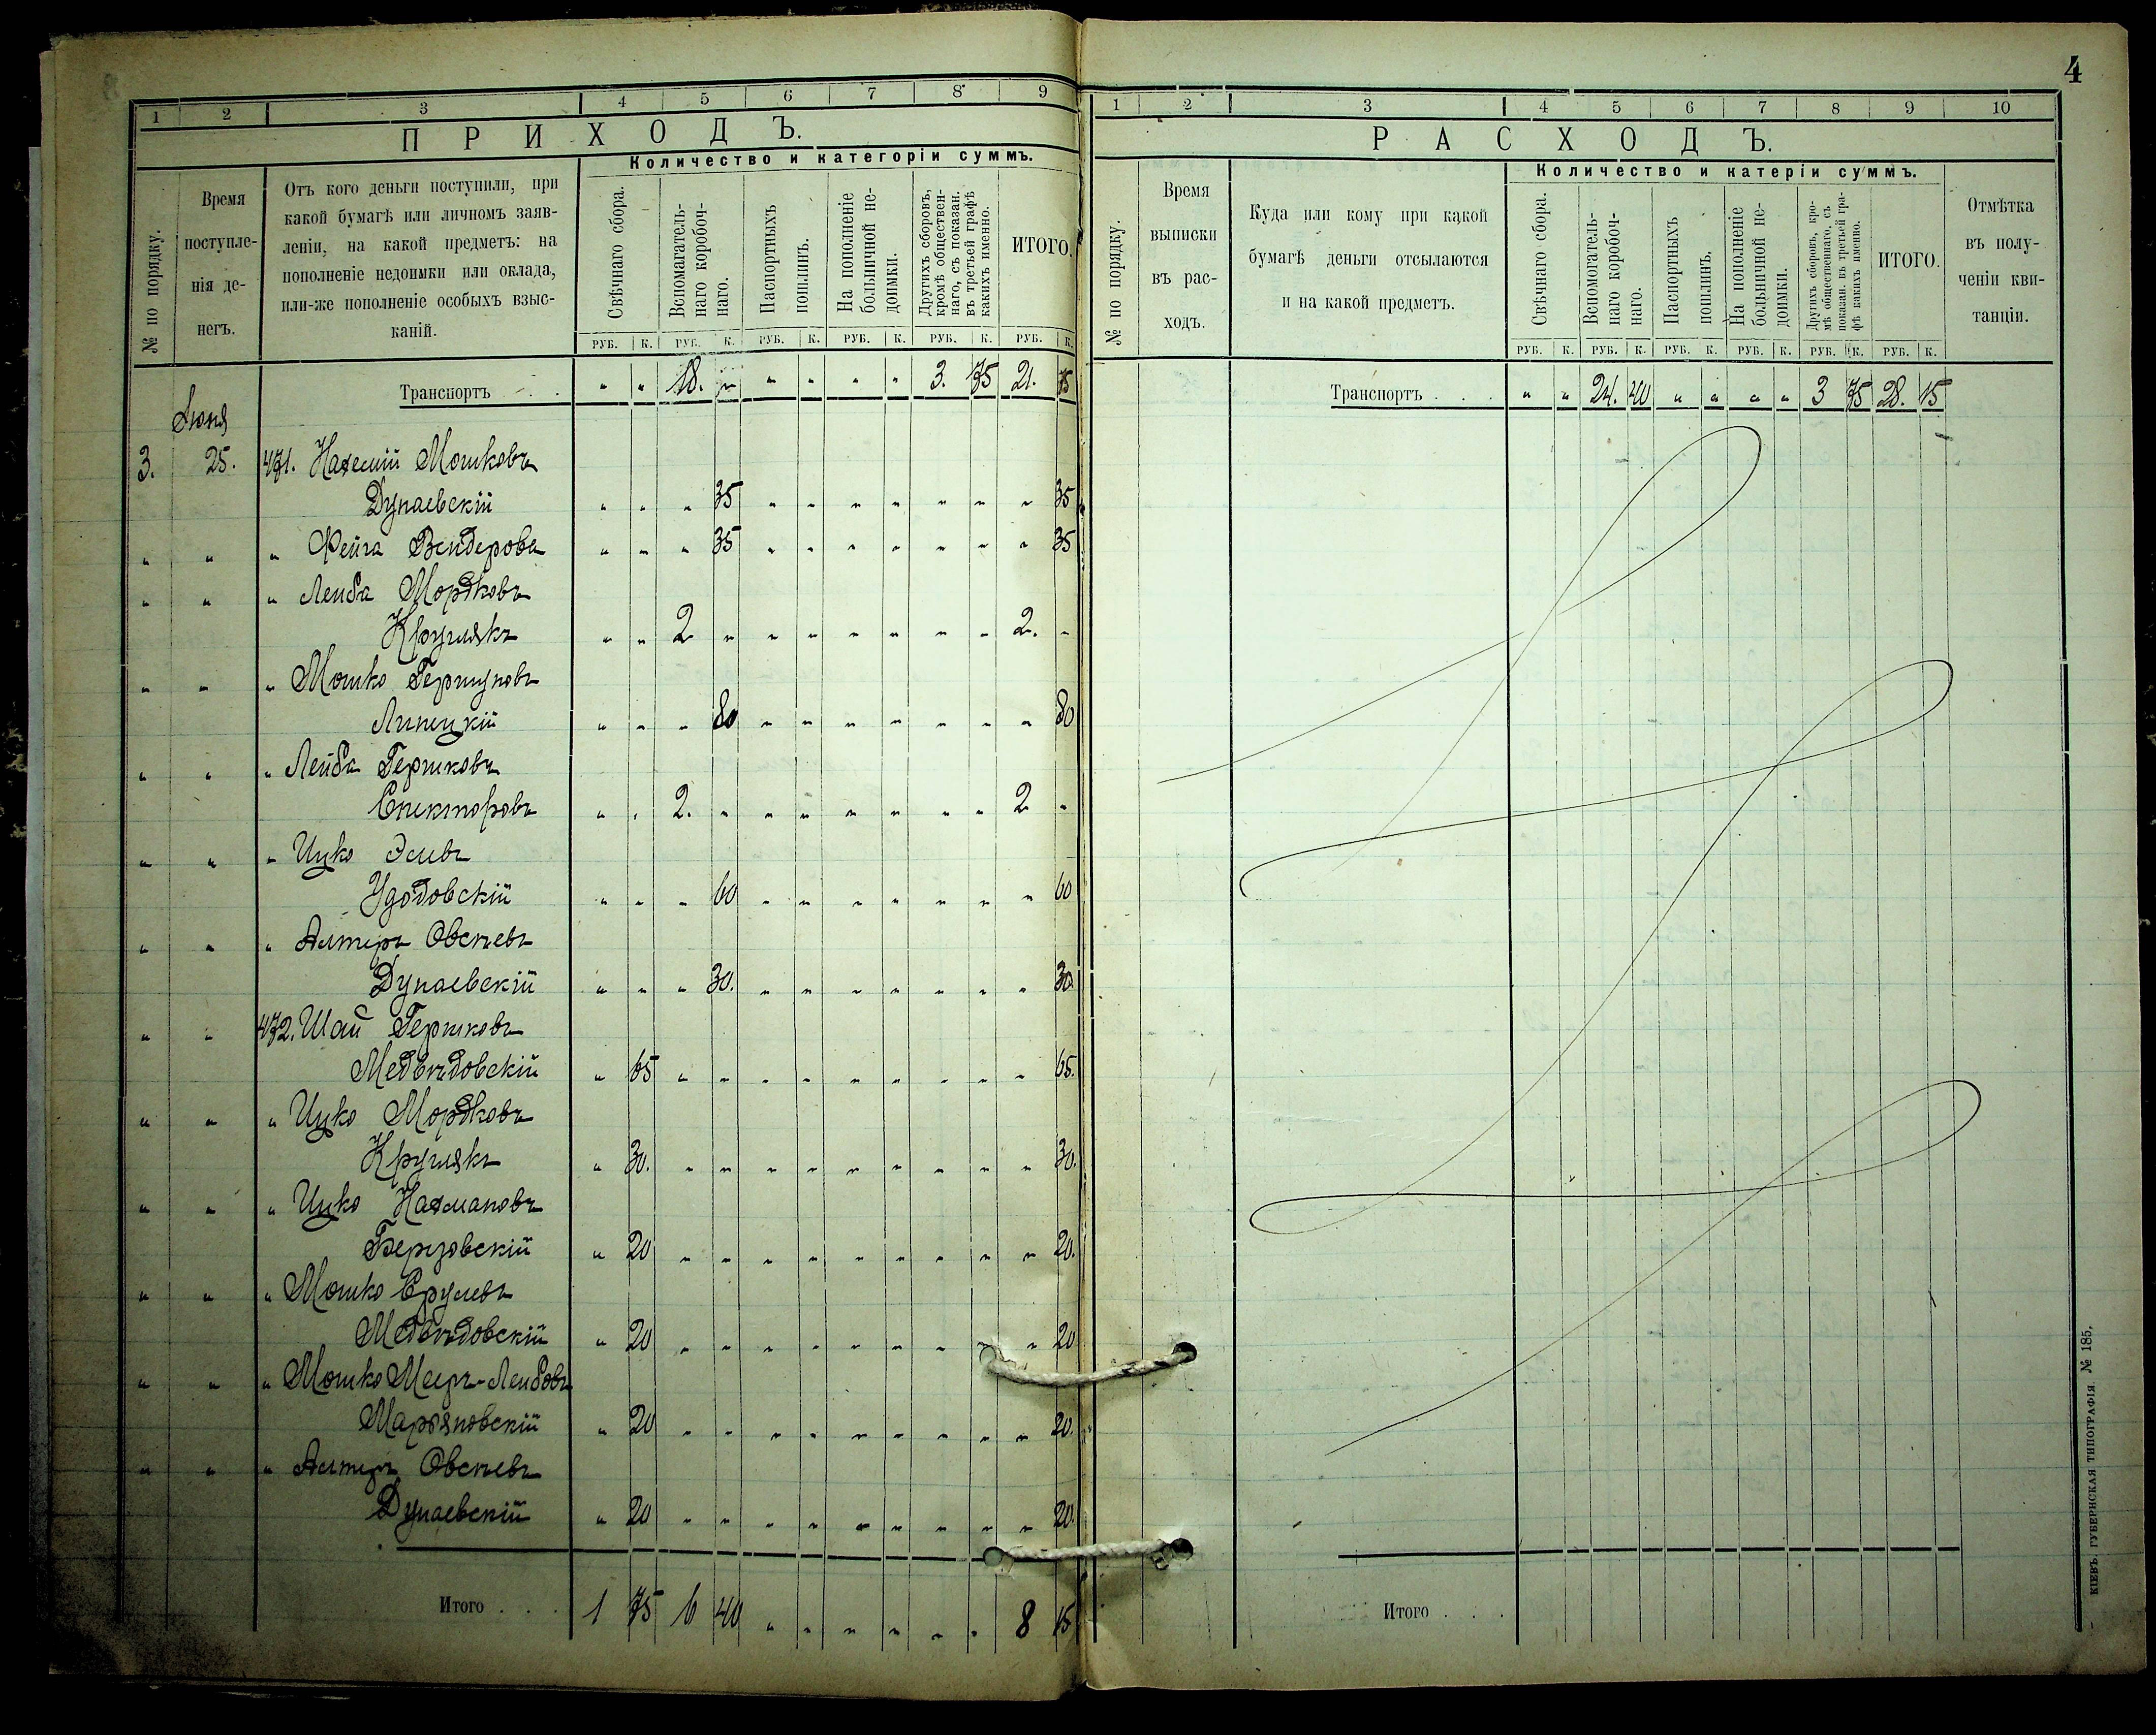 4
1 2 3 4 5 6 7 8 9
ПРИХОДЪ.
№ по порядку.
Время поступле-
нія де-
негъ.
Отъ кого деньги поступили, при
какой бумагѣ или личномъ заяв-
леніи, на какой предметъ: на
пополненіе недоимки или оклада,
или-же пополненіе особыхъ взыс-
каній.
Количество и категоріи суммъ.
Свѣчнаго сбора.
Вспомагатель-
наго коробоч-
наго.
Паспортныхъ
пошлинъ.
На пополненіе
больничной не-
доимки.
Другихъ сборовъ,
кромѣ обществен-
наго, съ показан.
въ третьей графѣ
какихъ именно.
ИТОГО.
РУБ. К. РУБ. К. РУБ. К. РУБ. К. РУБ. К. РУБ. К.
Транспортъ . . " " 18. " " " " " 3. 75 21. 75
Іюня
3. 25. 471. Нахемій Мошковъ
Дунаевскій " " " 35 " " " " " " " 35
" " " Фейга Вендерова " " " 35 " " " " " " " 35
" " " Лейба Мордковъ
Круглякъ " " 2 " " " " " " " 2. "
" " " Мошко Гершуновъ
Липецкій " " " 80 " " " " " " " 80
" " " Лейба Гершковъ
Спекторовъ " " 2. " " " " " " " 2 "
" " " Ицко Элевъ
Удодовскій " " " 60 " " " " " " " 60
" " " Алтеръ Овсеевъ
Дунаевскій " " " 30. " " " " " " " 30.
" " 472. Шай Гершковъ
Медвѣдовскій " 65 " " " " " " " " " 65.
" " " Ицко Мордковъ
Круглякъ " 30. " " " " " " " " " 30.
" " " Ицко Нахмановъ
Березовскій " 20 " " " " " " " " " 20.
" " " Мошко Срулевъ
Медвѣдовскій " 20 " " " " " " " " " 20
" " " Мошко Мееръ-Лейбовъ
Марьяновскій " 20 " " " " " " " " " 20.
" " " Алтеръ Овсеевъ
Дунаевскій " 20 " " " " " " " " " 20.
Итого . . . 1 75 6 40 " " " " " " 8 15
1 2 3 4 5 6 7 8 9 10
РАСХОДЪ.
№ по порядку.
Время
выписки
въ рас-
ходъ.
Куда или кому при какой
бумагѣ деньги отсылаются
и на какой предметъ.
Количество и катеріи суммъ.
Свѣчнаго сбора.
Вспомогатель-
наго коробоч-
наго.
Паспортныхъ
пошлинъ.
На пополненіе
больничной не-
доимки.
Другихъ сборовъ, кро-
мѣ общественнаго, съ
показан. въ третьей гра-
фѣ какихъ именно.
ИТОГО.
Отмѣтка
въ полу-
ченіи кви-
танціи.
РУБ. К. РУБ. К. РУБ. К. РУБ. К. РУБ. К. РУБ. К.
Транспортъ . . . " " 24. 40 " " " " 3 75 28. 15
Итого . . .
КІЕВЪ. ГУБЕРНСКАЯ ТИПОГРАФІЯ. № 185.